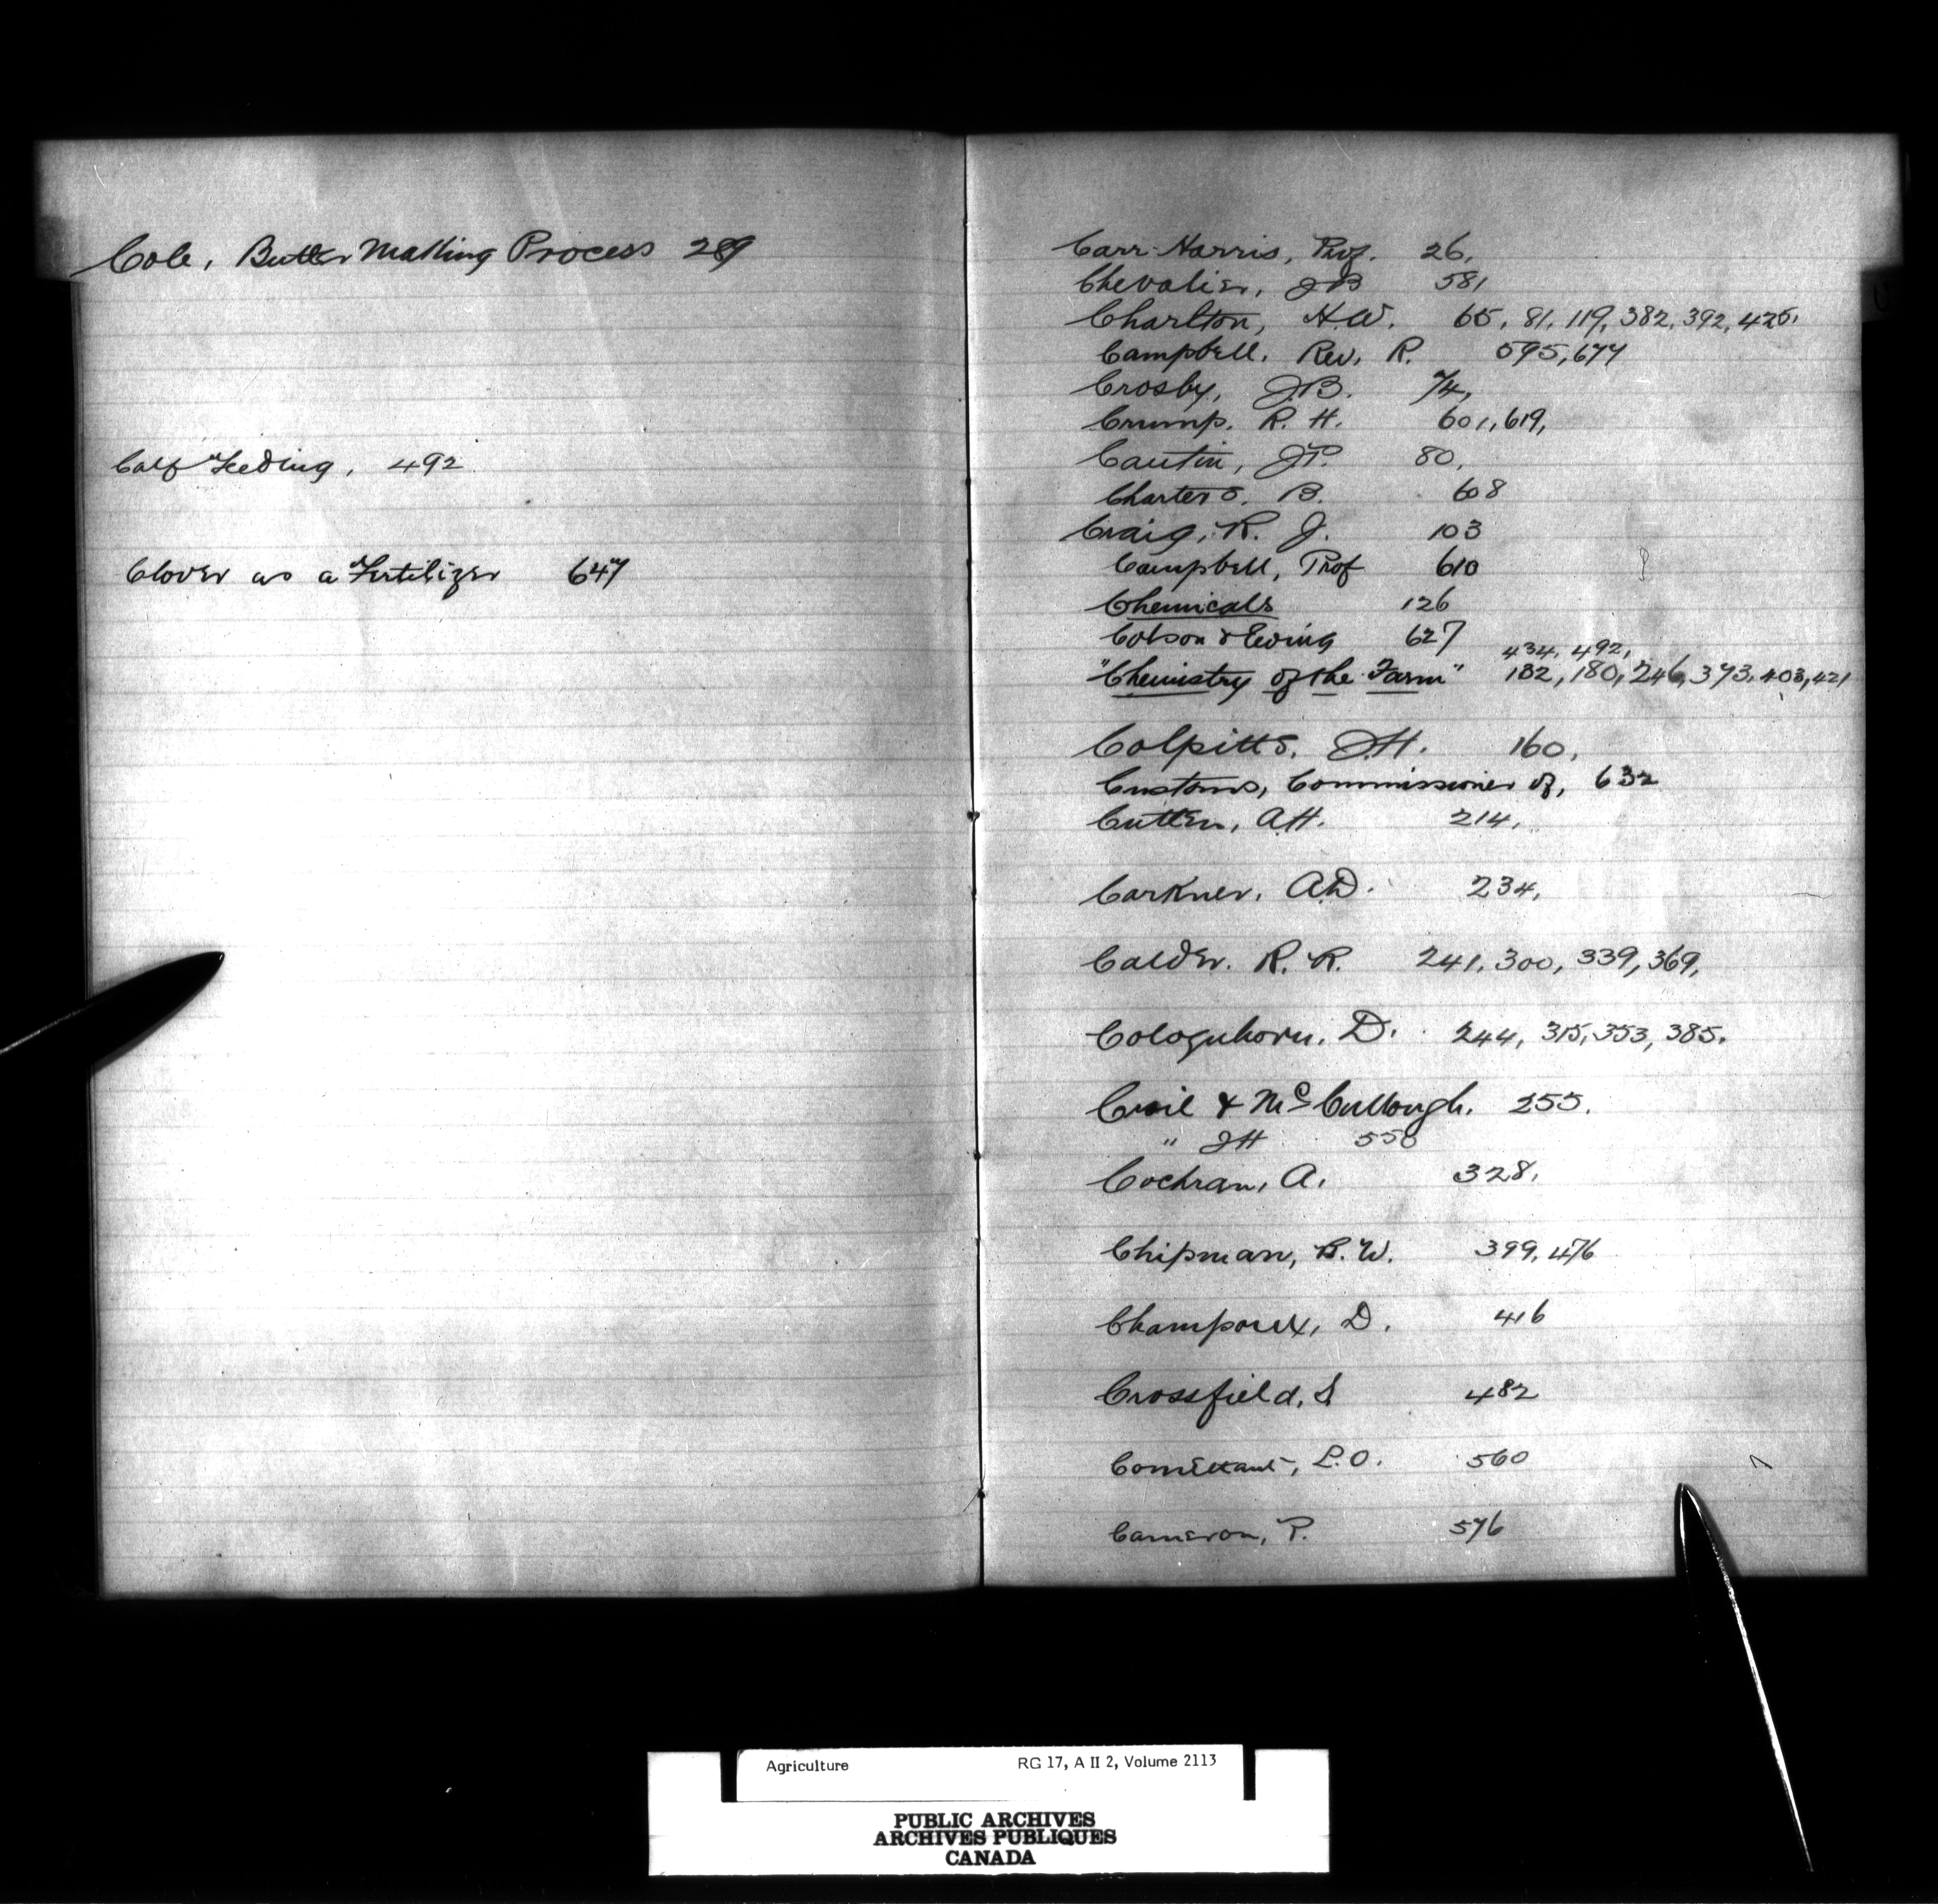 Cole, Butter Making Process 289
Calf Feeding, 492
Clover as a Fertilizer 647
Carr-Harris, Prof. 26,
Chevalier, J B 581
Charlton, H.W. 65, 81, 119, 382, 392, 425,
Campbell, Rev. R. 595, 677
Crosby, J.B. 74,
Crump, R. H. 601, 619,
Cautin, J.P. 80,
Charters, B. 608
Craig, R. J. 103
Campbell, Prof 610
Chemicals 126
Cobson & Ewing 627
434, 492,
"Chemistry of the Farm" 132, 180, 246, 373, 403, 421
Colpitts, J.H. 160,
Customs, Commissioner of, 632
Cutten, A.H. 214,
Carkner, A.D. 234,
Calder. R. R. 241, 300, 339, 369,
Cologuhorn, D. 244, 315, 353, 385.
Croil & McCullough. 255.
" J H 550
Cochran, A. 328,
Chipman, B. W. 399, 476
Champoux, D. 416
Crossfield, S 482
Comettant, L.O. 560
Cameron, P. 576
Agriculture RG 17, A II 2, Volume 2113
PUBLIC ARCHIVES
ARCHIVES PUBLIQUES
CANADA